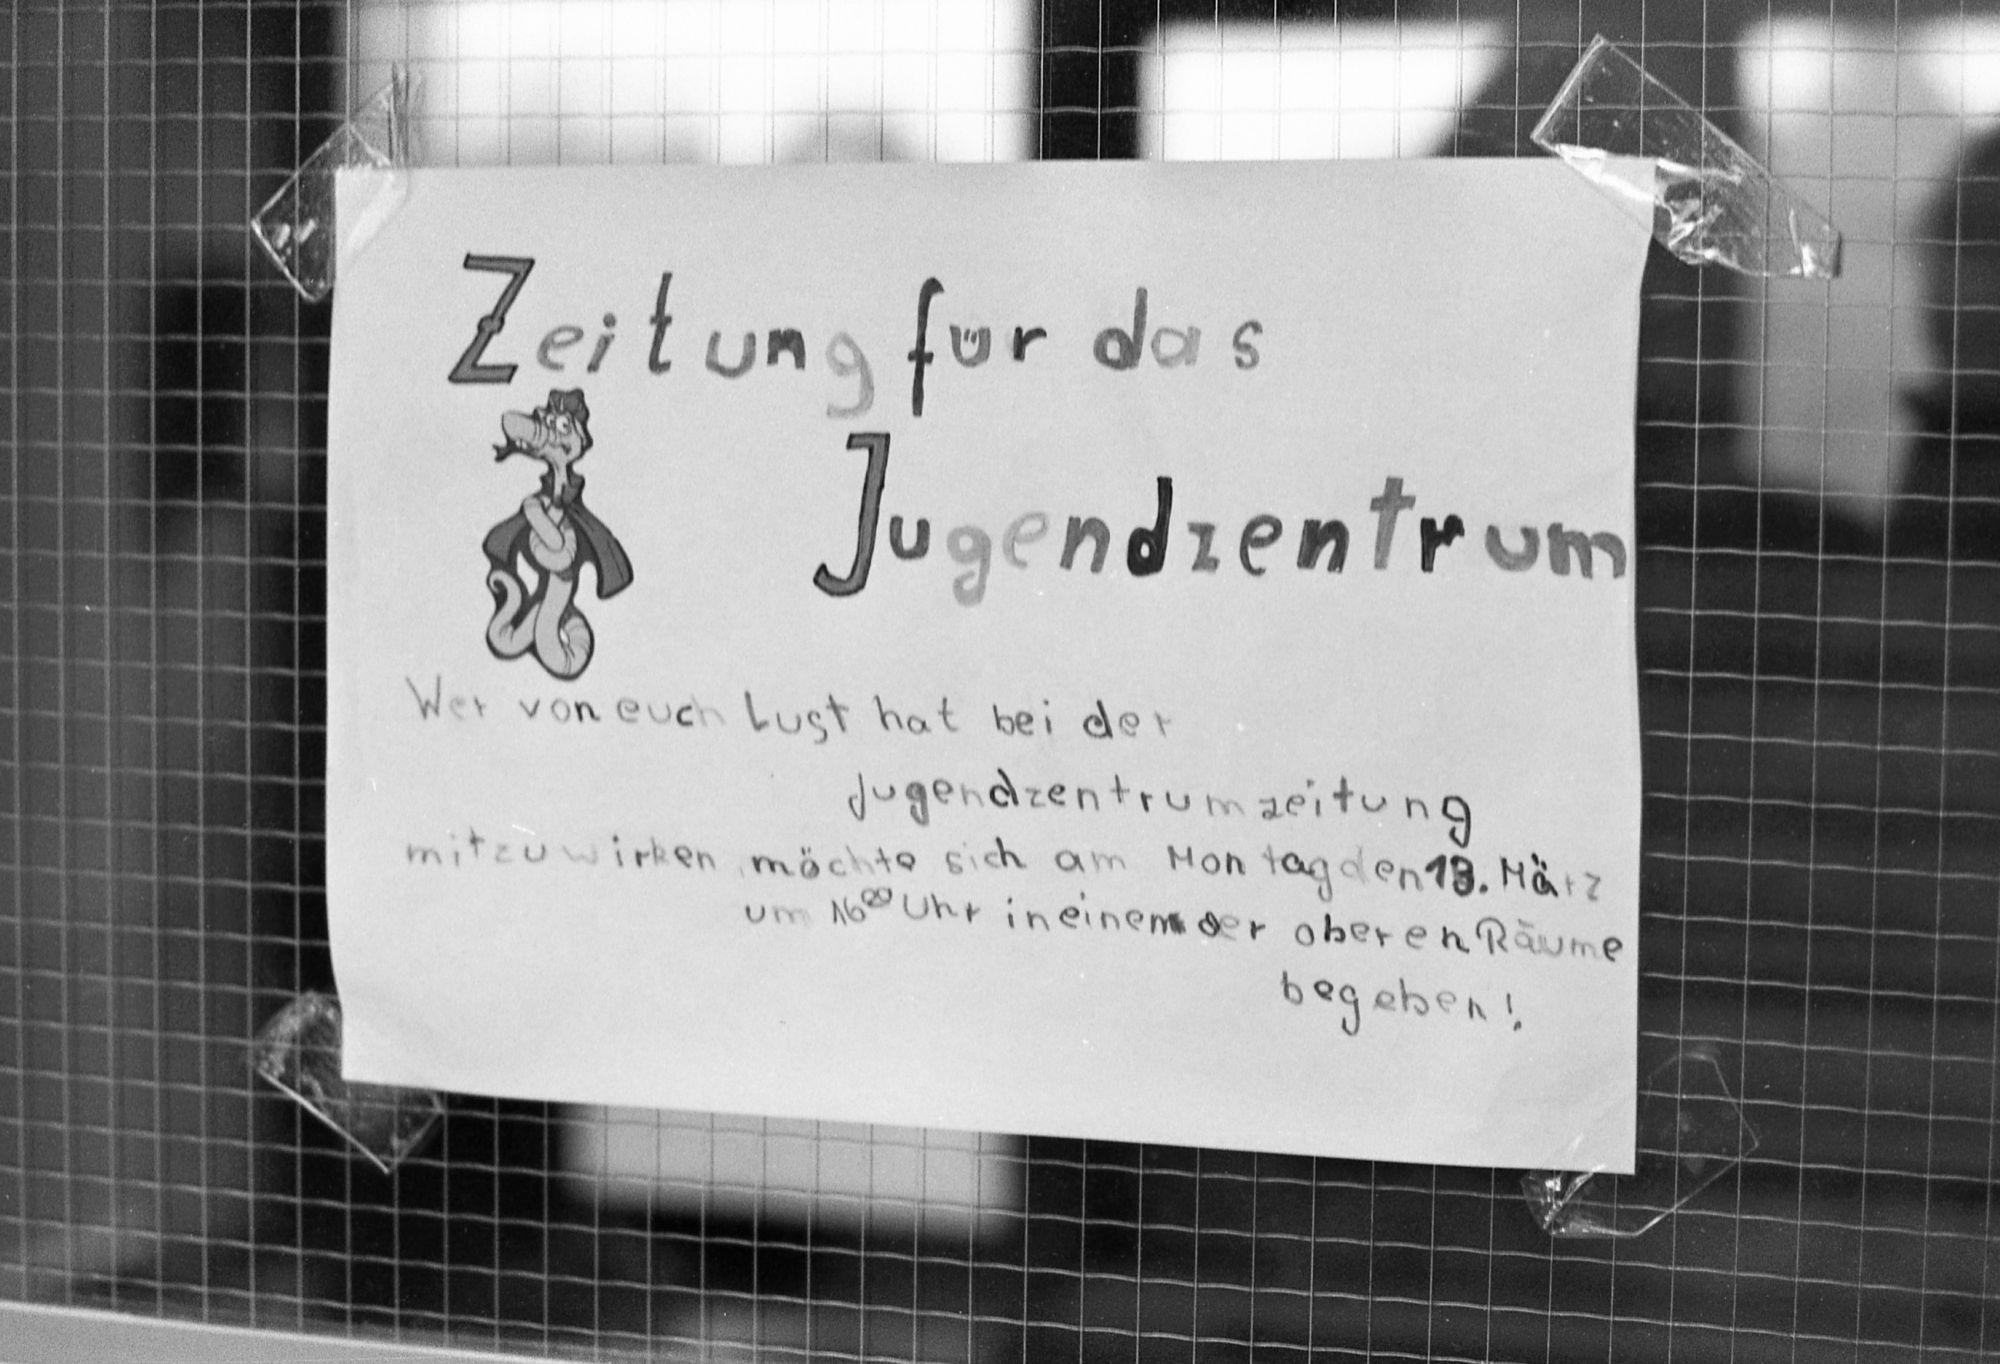 Zeitung für das
Jugendzentrum
Wer von euch Lust hat bei der
Jugendzentrumzeitung
mitzuwirken, möchte sich am Montag den 13. März
um 16⁰⁰ Uhr in einem der oberen Räume
begeben!